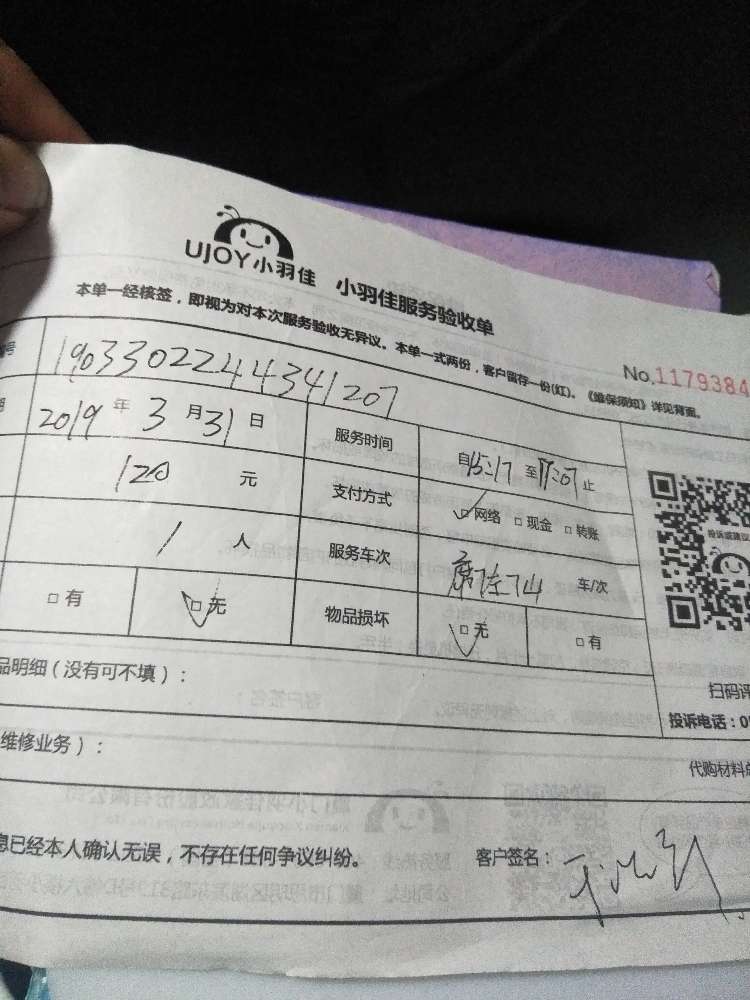 UJOY小羽佳 小羽佳服务验收单
本单一经核签，即视为对本次服务验收无异议。本单一式两份，客户留存一份(红)。《维保须知》详见背面。
No.1179384
号 190330224434 1207
期 2019 年 3 月 31 日 服务时间 自 15:17 至 17:07 止
120 元 支付方式 □网络 □现金 □转账
1 人 服务车次 车/次
□有 □无 物品损坏 □无 □有
投诉或建议
扫码评
投诉电话：0
品明细（没有可不填）：
维修业务）：
代购材料单
息已经本人确认无误，不存在任何争议纠纷。 客户签名：